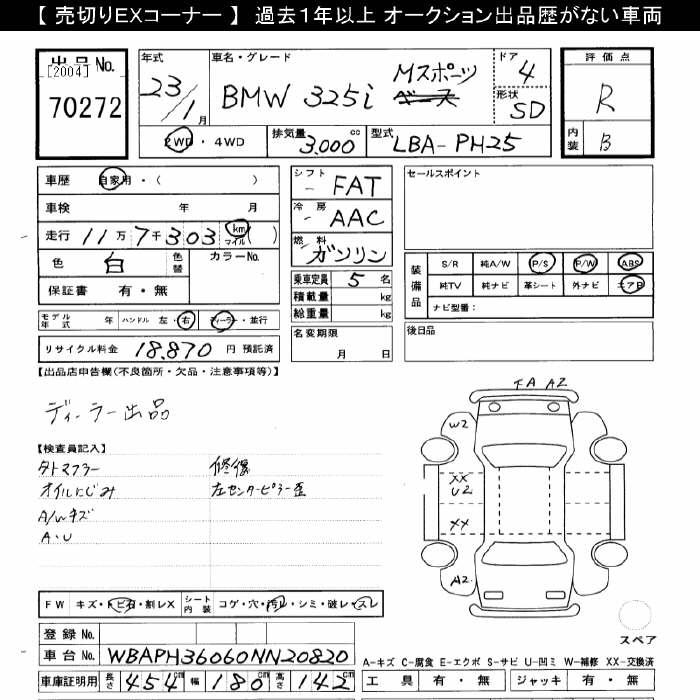 【 売切りEXコーナー 】 過去１年以上 オークション出品歴がない車両
出品No.
[2004]
70272
年式
23/1月
車名・グレード
BMW 325i Mスポーツ
ベース
ドア 4
形状 SD
2WD・4WD
排気量 3,000 cc
型式 LBA-PH25
評価点
R
内装 B
車歴 自家用・( )
車検 年 月
走行 11万7千303 (km マイル)
色 白 色替 カラーNo.
保証書 有・無
モデル年式 年 ハンドル 左・右 ディーラー・並行
リサイクル料金 18,870 円 預託済
シフト - FAT
冷房 - AAC
燃料 ガソリン
乗車定員 5 名
積載量 kg
総重量 kg
名変期限
月 日
セールスポイント
装備品
S/R 純A/W P/S P/W ABS
純TV 純ナビ 革シート 外ナビ エアB
ナビ型番：
後日品
【出品店申告欄(不良箇所・欠品・注意事項等)】
ディーラー出品
【検査員記入】
タトマフラー
オイルにじみ
A/Wキズ
A・U
修復
左センターピラー歪
FA A2
W2
XX
U2
XX
A2
スペア
FW キズ・トビ石・割レX シート内装 コゲ・穴・汚レ・シミ・破レ・スレ
登録No.
車台No. WBAPH36060NN20820
車庫証明用 長さ 454cm 幅 180cm 高さ 142cm
A-キズ C-腐食 E-エクボ S-サビ U-凹ミ W-補修 XX-交換済
工具 有・無 ジャッキ 有・無